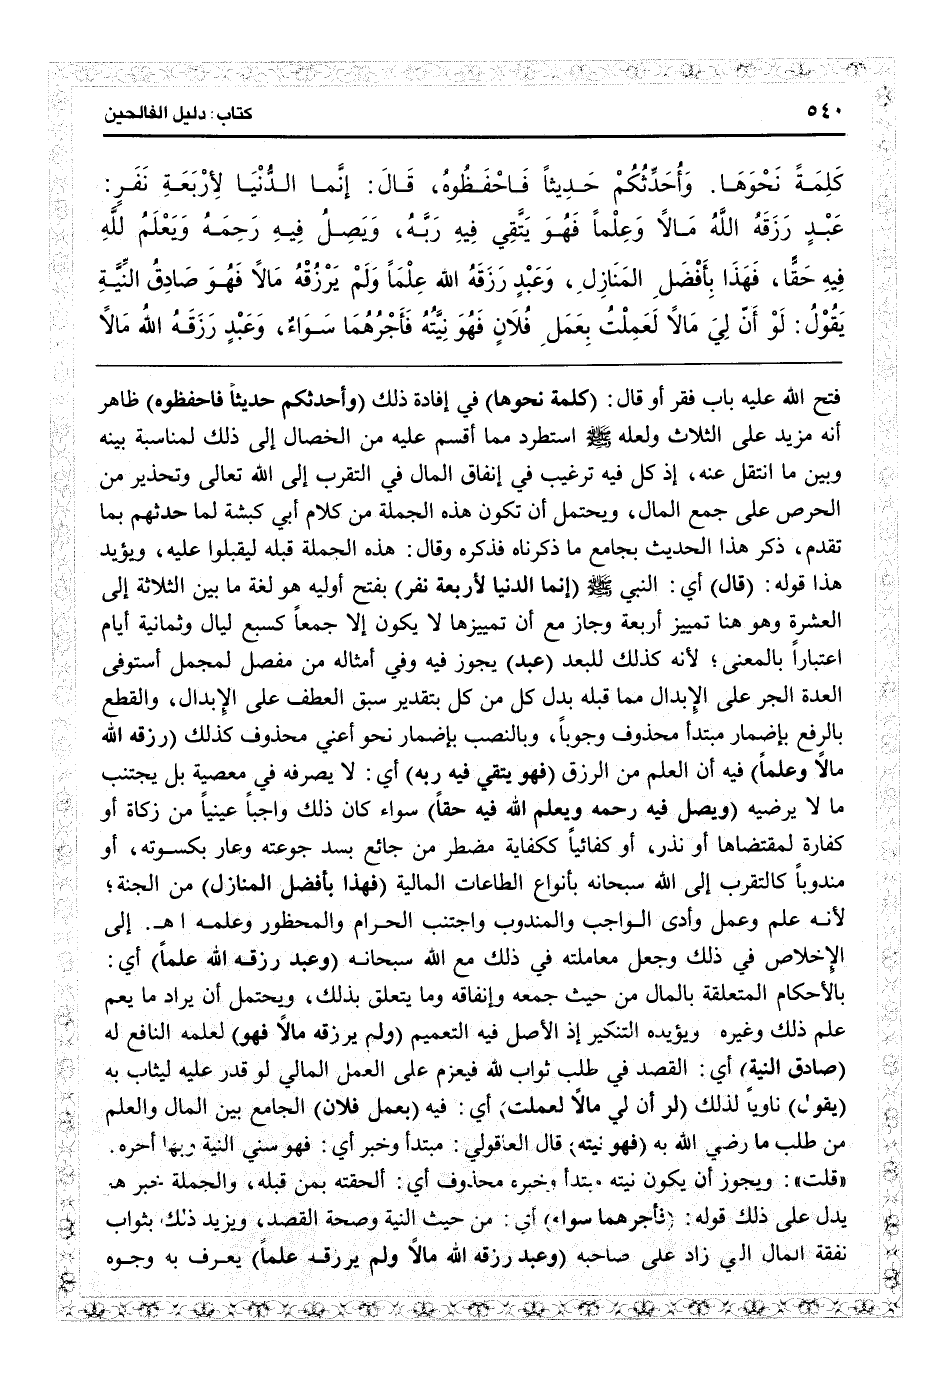 ٥٤٠
كتاب: دليل الفالحين
كَلِمَةً نَحْوَهَا. وَأُحَدِّثُكُمْ حَدِيثاً فَاحْفَظُوهُ، قَالَ: إِنَّما الدُّنْيَا لِأَرْبَعَةِ نَفَرٍ:
عَبْدٍ رَزَقَهُ اللَّهُ مَالاً وَعِلْماً فَهُوَ يَتَّقِي فِيهِ رَبَّهُ، وَيَصِلُ فِيهِ رَحِمَهُ وَيَعْلَمُ للَّهِ
فِيهِ حَقًّا، فَهَذَا بِأَفْضَلِ المَنَازِلِ، وَعَبْدٍ رَزَقَهُ الله عِلْمَاً وَلَمْ يَرْزُقْهُ مَالاً فَهُوَ صَادِقُ النِّيَّةِ
يَقُوْلُ: لَوْ أَنَّ لِيَ مَالاً لَعَمِلْتُ بِعَمَلِ فُلَانٍ فَهُوَ نِيَّتُهُ فَأَجْرُهُمَا سَوَاءٌ، وَعَبْدٍ رَزَقَهُ الله مَالاً
فتح الله عليه باب فقر أو قال: (كلمة نحوها) في إفادة ذلك (وأحدثكم حديثاً فاحفظوه) ظاهر
أنه مزيد على الثلاث ولعله ﷺ استطرد مما أقسم عليه من الخصال إلى ذلك لمناسبة بينه
وبين ما انتقل عنه، إذ كل فيه ترغيب في إنفاق المال في التقرب إلى الله تعالى وتحذير من
الحرص على جمع المال، ويحتمل أن تكون هذه الجملة من كلام أبي كبشة لما حدثهم بما
تقدم، ذكر هذا الحديث بجامع ما ذكرناه فذكره وقال: هذه الجملة قبله ليقبلوا عليه، ويؤيد
هذا قوله: (قال) أي: النبي ﷺ (إنما الدنيا لأربعة نفر) بفتح أوليه هو لغة ما بين الثلاثة إلى
العشرة وهو هنا تمييز أربعة وجاز مع أن تمييزها لا يكون إلا جمعاً كسبع ليال وثمانية أيام
اعتباراً بالمعنى؛ لأنه كذلك للبعد (عبد) يجوز فيه وفي أمثاله من مفصل لمجمل أستوفى
العدة الجر على الإبدال مما قبله بدل كل من كل بتقدير سبق العطف على الإبدال، والقطع
بالرفع بإضمار مبتدأ محذوف وجوباً، وبالنصب بإضمار نحو أعني محذوف كذلك (رزقه الله
مالاً وعلماً) فيه أن العلم من الرزق (فهو يتقي فيه ربه) أي: لا يصرفه في معصية بل يجتنب
ما لا يرضيه (ويصل فيه رحمه ويعلم الله فيه حقاً) سواء كان ذلك واجباً عينياً من زكاة أو
كفارة لمقتضاها أو نذر، أو كفائياً ككفاية مضطر من جائع بسد جوعته وعار بكسوته، أو
مندوباً كالتقرب إلى الله سبحانه بأنواع الطاعات المالية (فهذا بأفضل المنازل) من الجنة؛
لأنه علم وعمل وأدى الواجب والمندوب واجتنب الحرام والمحظور وعلمه اهـ. إلى
الإخلاص في ذلك وجعل معاملته في ذلك مع الله سبحانه (وعبد رزقه الله علماً) أي:
بالأحكام المتعلقة بالمال من حيث جمعه وإنفاقه وما يتعلق بذلك، ويحتمل أن يراد ما يعم
علم ذلك وغيره ويؤيده التنكير إذ الأصل فيه التعميم (ولم يرزقه مالاً فهو) لعلمه النافع له
(صادق النية) أي: القصد في طلب ثواب لله فيعزم على العمل المالي لو قدر عليه ليثاب به
(يقول) ناوياً لذلك (لو أن لي مالاً لعملت) أي: فيه (بعمل فلان) الجامع بين المال والعلم
من طلب ما رضي الله به (فهو نيته) قال العاقولي: مبتدأ وخبر أي: فهو سني النية ربها أجره.
«قلت»: ويجوز أن يكون نيته مبتدأ وخبره محذوف أي: ألحقته بمن قبله، والجملة خبر هـ
يدل على ذلك قوله: (فأجرهما سواء) أي: من حيث النية وصحة القصد، ويزيد ذلك بثواب
نفقة المال الي زاد على صاحبه (وعبد رزقه الله مالاً ولم يرزقه علماً) يعرف به وجوه